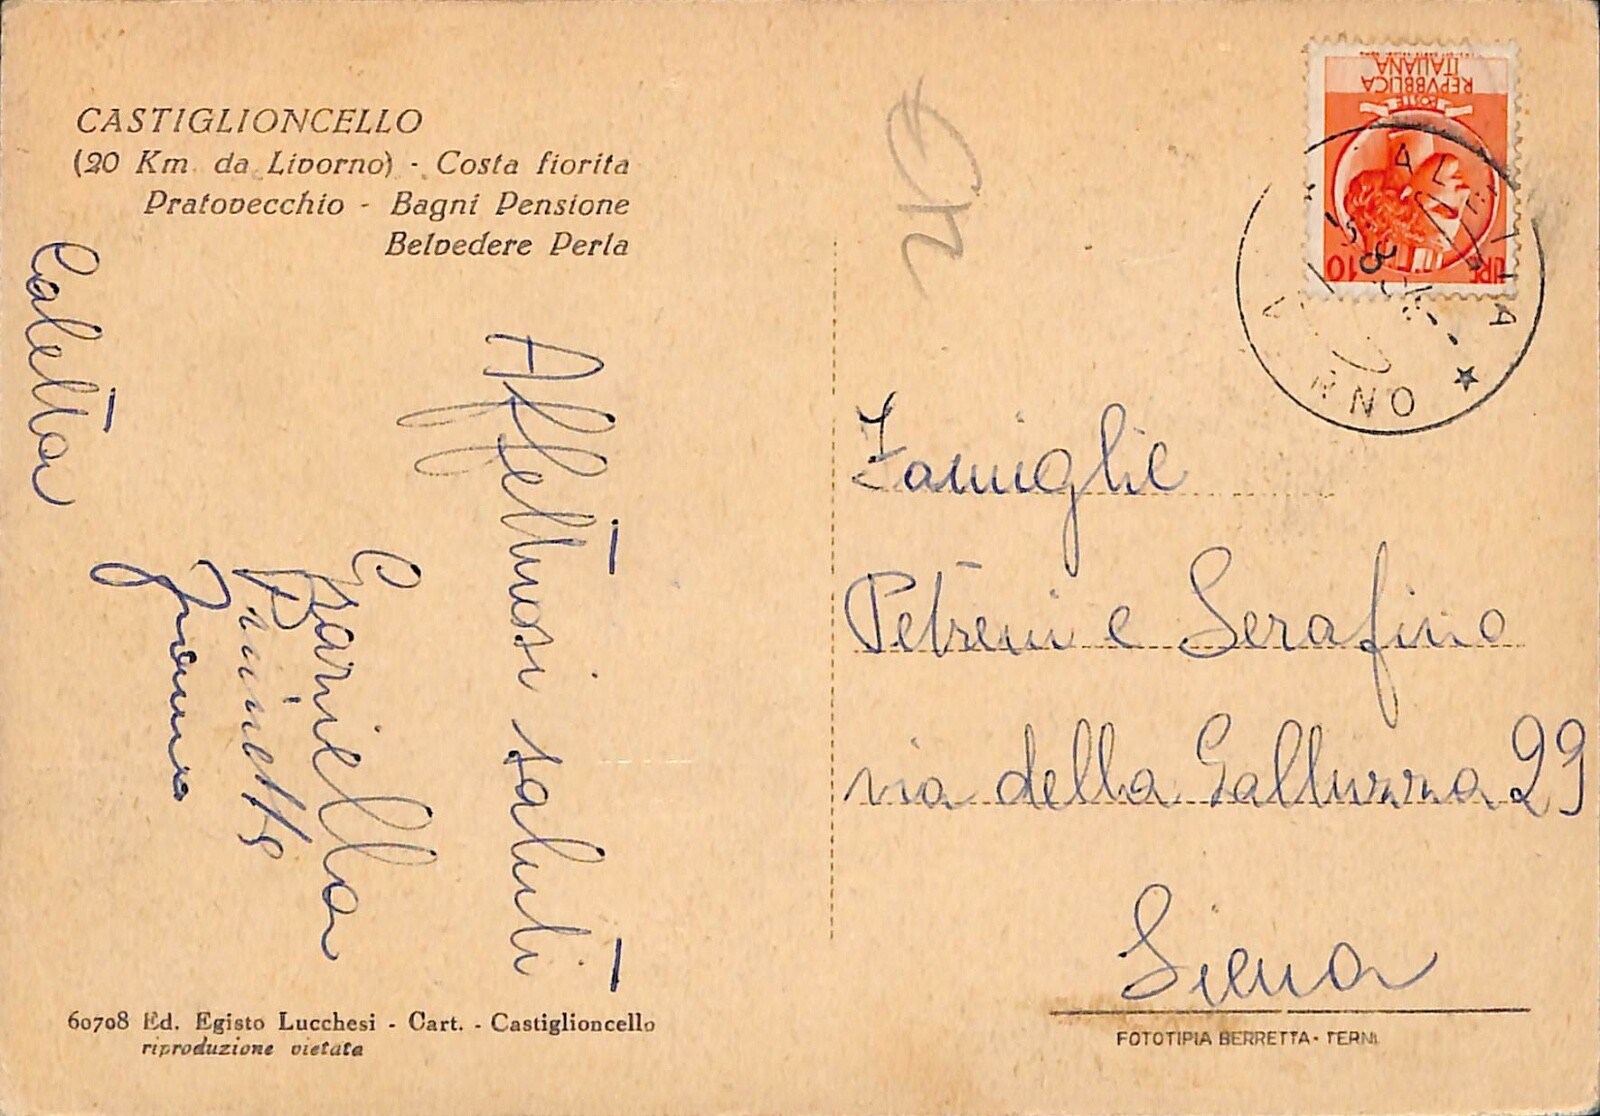 CASTIGLIONCELLO
(20 Km. da Livorno) - Costa fiorita
Pratovecchio - Bagni Pensione
Belvedere Perla
Caletta
Affettuosi saluti
Graziella
60708 Ed. Egisto Lucchesi - Cart. - Castiglioncello
riproduzione vietata
REPVBBLICA
ITALIANA
POSTE
LIRE 10
Famiglie
Petreni e Serafino
via della Galluzza 29
Siena
FOTOTIPIA BERRETTA - TERNI